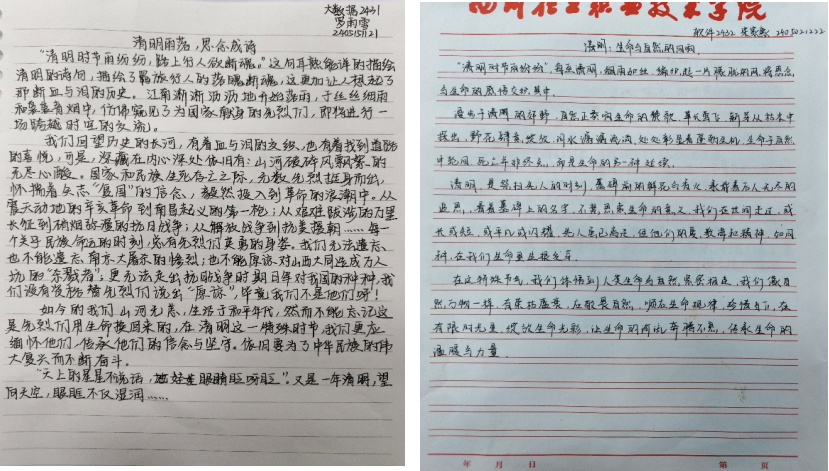 大数据2431
罗雨雪
2405151121
清明雨落，思念成诗
“清明时节雨纷纷，路上行人欲断魂。”这句耳熟能详的描绘
清明的诗句，描绘了羁旅行人的落魄断魂，这更加让人想起了
那断血与泪的历史。江南淅淅沥沥地开始落雨，于丝丝细雨
和袅袅青烟中，仿佛窥见了为国家献身的先烈们，即将进行一
场跨越时空的交流。
我们回望历史的长河，有着血与泪的交织，也有着找到道路
的喜悦，可是，深藏在内心深处依旧有：山河破碎风飘絮的
无尽心酸。国家和民族生死存亡之际，无数先烈挺身而出，
怀揣着矢志“复国”的信念，毅然投入到革命的浪潮中。从
震天动地的辛亥革命到南昌起义的第一枪；从艰难跋涉的万里
长征到硝烟弥漫的抗日战争；从解放战争到抗美援朝……每一
个关乎民族命运的时刻，总有先烈们英勇的身姿。我们无法遗忘、
也不能遗忘南京大屠杀的惨烈；也不能原谅对山西大同造成万人
场的“杀戮者”；更无法走出抗战争时期日年对我国的种种，我
们没有资格替先烈们说出“原谅”，毕竟我们不是他们呀！
如今的我们山河无恙，生活于和平年代，然而不能忘记这
是先烈们用生命换回来的，在清明这一特殊时节，我们更应
缅怀他们，传承他们的信念与坚守。依旧要为了中华民族的伟
大复兴而不断奋斗。
“天上的星星不说话，娃娃眼睛眨呀眨”。又是一年清明，望
向天空，眼眶不仅湿润……
软件2432 2405021222
清明：生命与自然的回响
“清明时节雨纷纷”，每至清明，细雨如丝，编织起一片朦胧的网，将思念
与生命的感悟交织其中。
漫步于清明的郊野，自然正奏响生命的赞歌。草长莺飞，新芽从枯木中
探出，野花肆意绽放，河水潺潺流淌，处处彰显着蓬勃生机，生命于自然
中轮回，死亡并非终点，而是生命的另一种延续。
清明，是祭扫先人的时刻，墓碑前的鲜花与香火，承载着后人无尽的
追思，看着墓碑上的名字，不禁思索生命的意义，我们在世间走过，或
长或短，或平凡或闪耀，先人虽已离去，但他们的爱，教诲和精神，如同
种，在我们生命里生根发芽。
在这特殊节气，我们体悟到人类生命与自然息息相连，我们像自
然万物一样，有荣枯盛衰，应敬畏自然，顺应生命规律，珍惜当下，在
有限时光里，绽放生命光彩，让生命的河流奔腾不息，传承生命的
温暖与力量。
年 月 日 第 页